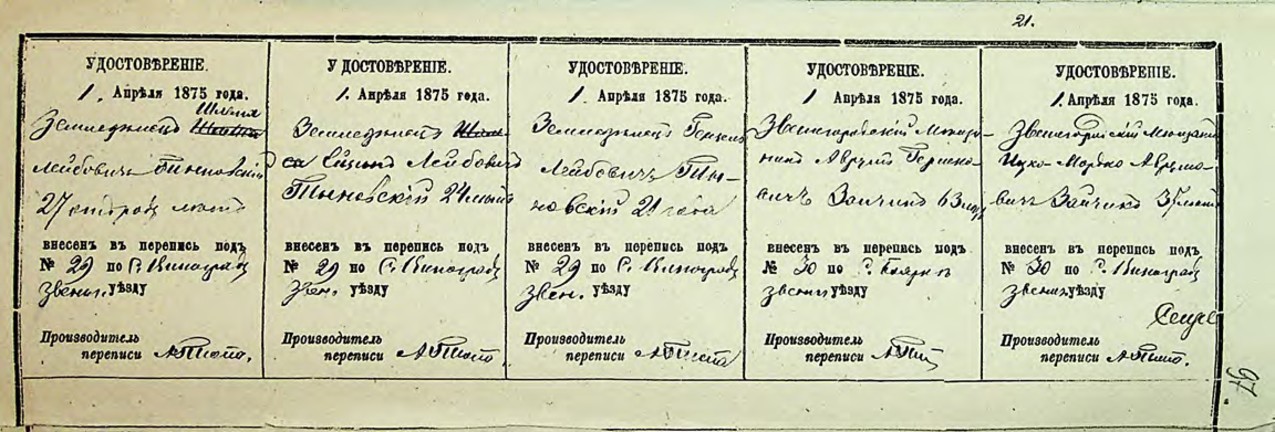 21.
УДОСТОВѢРЕНІЕ.
1 Апрѣля 1875 года.
Шлема
Земледѣлецъ
Лейбовичъ Тыновскій
27 лѣтъ
внесенъ въ перепись подъ
№ 29 по с. Виноградъ
Звениг. уѣзду
Производитель
переписи
УДОСТОВѢРЕНІЕ.
1. Апрѣля 1875 года.
Земледѣлецъ
Лейбовичъ
Тыновскій 24 лѣтъ
внесенъ въ перепись подъ
№ 29 по с. Виноградъ
Звен. уѣзду
Производитель
переписи
УДОСТОВѢРЕНІЕ.
1 Апрѣля 1875 года.
Земледѣлецъ
Лейбовичъ Ты-
новскій 21 года
внесенъ въ перепись подъ
№ 29 по с. Виноградъ
Звен. уѣзду
Производитель
переписи
УДОСТОВѢРЕНІЕ.
1 Апрѣля 1875 года.
Звенигородскій Мѣща-
нинъ Аврумъ Гершко-
вичъ Зайчикъ 63 лѣтъ
внесенъ въ перепись подъ
№ 30 по с.
Звениг. уѣзду
Производитель
переписи
УДОСТОВѢРЕНІЕ.
1. Апрѣля 1875 года.
Звенигородскій Мѣщанинъ
Ицко-Мордко Аврумо-
вичъ Зайчикъ 35 лѣтъ
внесенъ въ перепись подъ
№ 30 по с. Виноградъ
Звениг. уѣзду
Производитель
переписи
97.